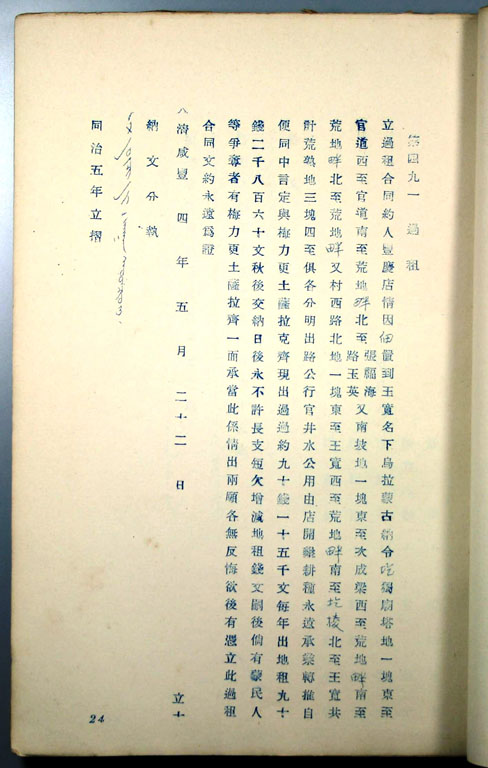 第四九一 過租
立過租合同約人豐慶店情因佃置到王寬名下烏拉蒙古納令 獨廟塔地一塊東至
官道西至官道南至荒地畔北至張福海路玉英又南坡地一塊東至次成梁西至荒地畔南至
荒地畔北至荒地畔又村西路北地一塊東至王寬西至荒地畔南至圪棱北至王寬共
計荒熟地三塊四至俱各分明出路公行官井水公用由店開墾耕種永遠承業轉推自
便同中言定與梅力更土薩拉克齊現出過過約九十錢一十五千文每年出地租九十
錢二千八百六十文秋後交納日後永不許長支短欠增減地租錢文嗣後倘有蒙民人
等爭奪者有梅力更土薩拉齊一面承當此係情出兩願各無反悔欲後有憑立此過租
合同文約永遠為證
大清咸豐四年五月二十二日 立十
納文分執
同治五年立摺
24